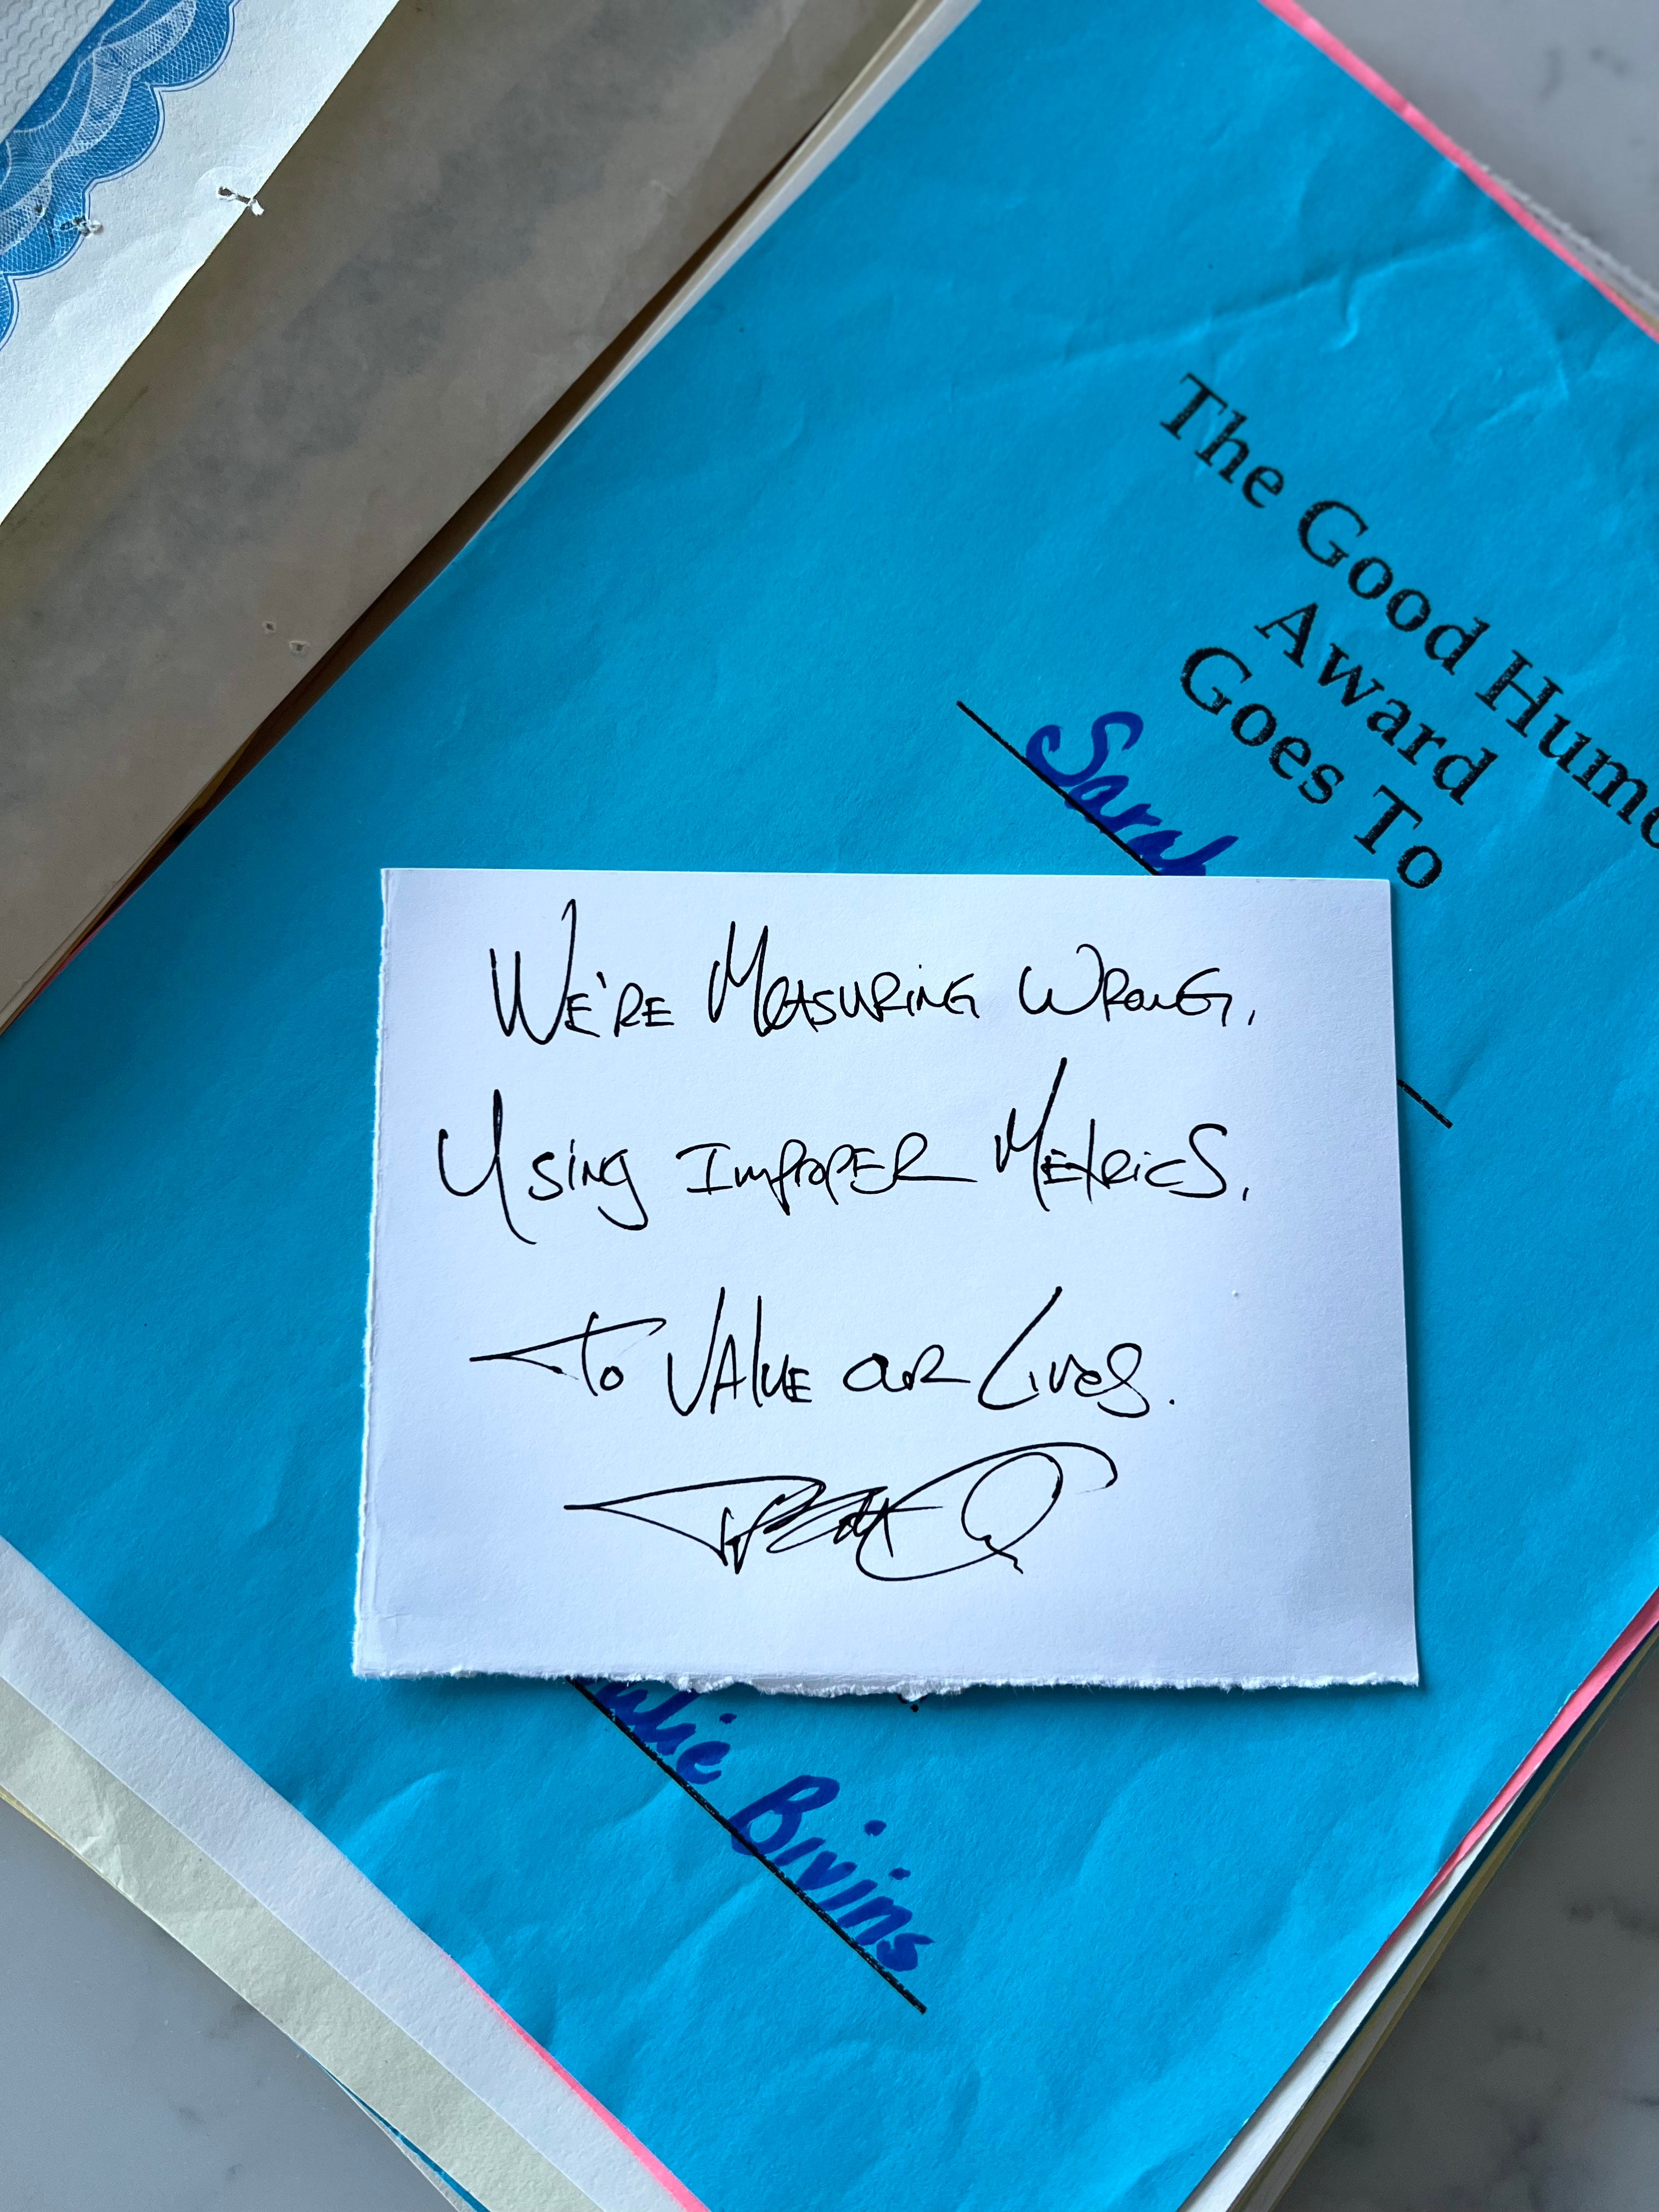 The Good Humo
Award
Goes To
Sarah
We're Measuring Wrong,
Using Improper Metrics,
To Value our Lives.
Bivins